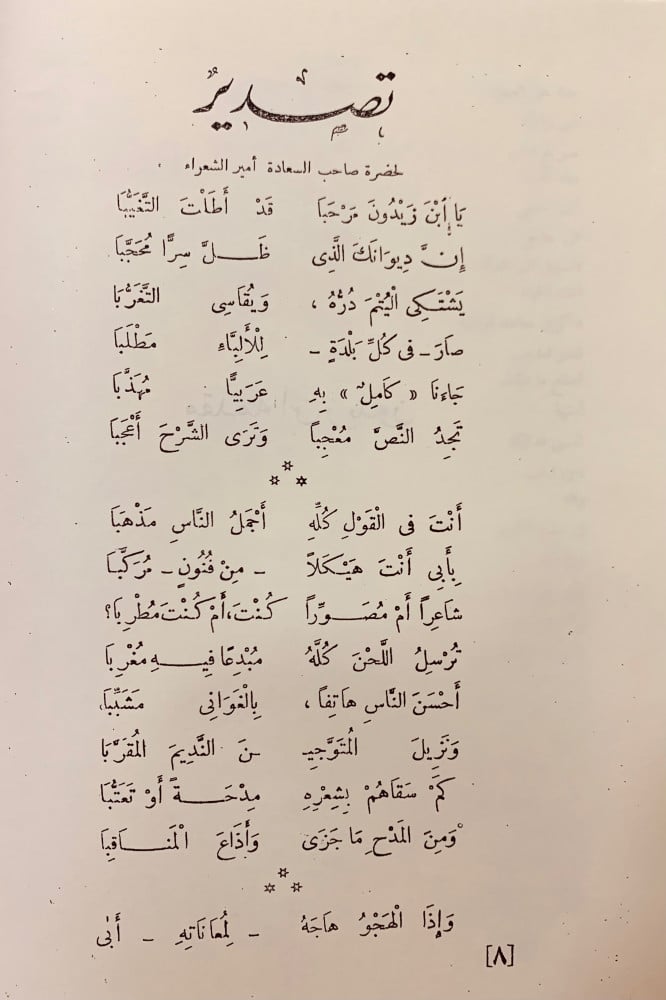 تصدير
لحضرة صاحب السعادة أمير الشعراء
يَا ٱبْنَ زَيْدُونَ مَرْحَبَا قَدْ أَطَلْتَ التَّغَيُّبَا
إِنَّ دِيوَانَكَ الَّذِى ظَلَّ سِرًّا مُحَجَّبَا
يَشْتَكِى الْيُتْمَ دُرُّهُ ، وَيُقَاسِى التَّغَرُّبَا
صَارَ – فى كُلِّ بَلْدَةٍ – لِلْأَلِبَّاءِ مَطْلَبَا
جَاءَنَا « كَامِلٌ » بِهِ عَرَبِيًّا مُهَذَّبَا
تَجِدُ النَّصَّ مُعْجِبًا وَتَرَى الشَّرْحَ أَعْجَبَا
أَنْتَ فى الْقَوْلِ كُلِّهِ أَجْمَلُ النَّاسِ مَذْهَبَا
بِأَبِي أَنْتَ هَيْكَلاً – مِنْ فُنُونٍ – مُرَكَّبَا
شاعِراً أَمْ مُصَوِّراً كُنْتَ، أَمْ كُنْتَ مُطْرِبَا؟
تُرْسِلُ اللَّحْنَ كُلَّهُ مُبْدِعًا فِيهِ مُغْرِبَا
أَحْسَنَ النَّاسِ هَاتِفًا ، بِالْغَوَانِى مُشَبِّبَا،
وَنَزِيلَ الْمُتَوَّجِيـ ـنَ النَّدِيمَ الْمُقَرَّبَا
كَمْ سَقَاهُمْ بِشِعْرِهِ مِدْحَةً أَوْ تَعَتُّبَا
وَمِنَ الْمَدْحِ مَا جَزَى وَأَذَاعَ الْمَنَاقِبَا
وَإِذَا الْهَجْوُ هَاجَهُ – لِمُعَانَاتِهِ – أَبَى
[٨]